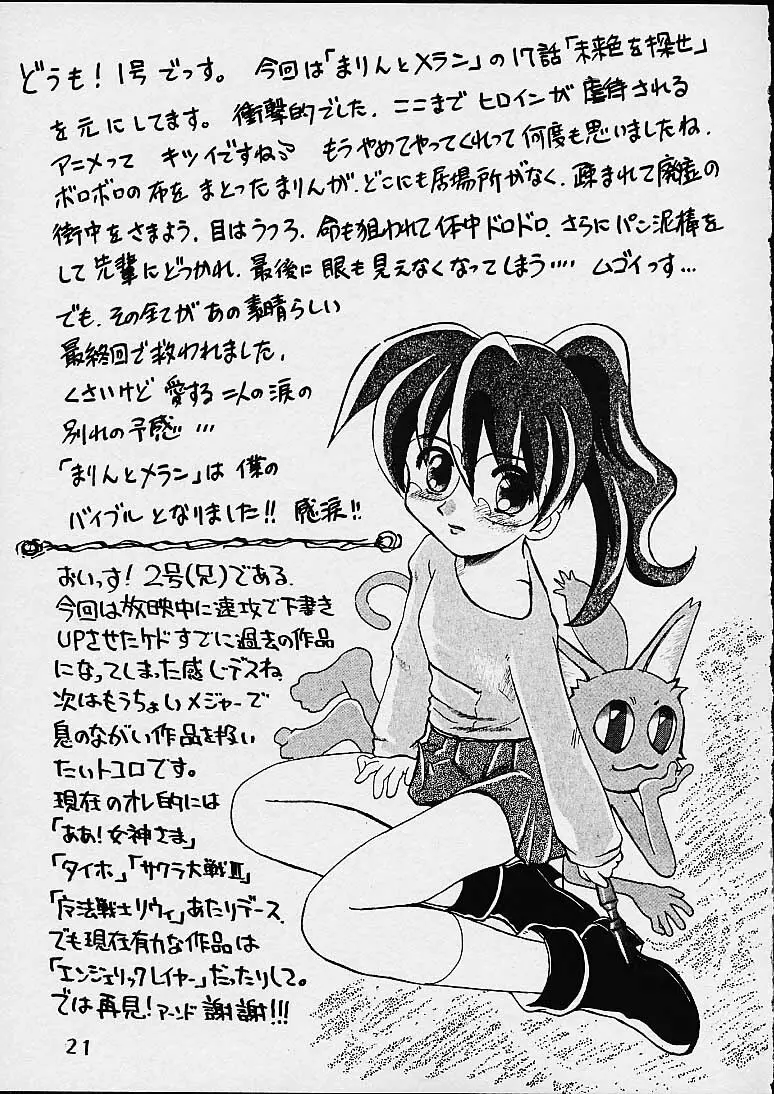 どうも!1号でっす。今回は「まりんとメラン」の17話「未来色を探せ」
を元にしてます。衝撃的でした.ここまでヒロインが虐待される
アニメってキツイですね もうやめてやってくれって何度も思いましたね.
ボロボロの布をまとったまりんが.どこにも居場所がなく.疎まれて廃墟の
街中をさまよう.目はうつろ.命も狙われて体中ドロドロ.さらにパン泥棒を
して先輩にどつかれ.最後に眼も見えなくなってしまう‥‥ムゴイっす…
でも.その全てがあの素晴らしい
最終回で救われました.
くさいけど愛する二人の涙の
別れの予感…
「まりんとメラン」は僕の
バイブルとなりました!!感涙!!
おいっす!2号(兄)である.
今回は放映中に速攻で下書き
UPさせたケドすでに過去の作品
になってしまった感じデスね
次はもうちょいメジャーで
息のながい作品を扱い
たいトコロです。
現在のオレ的には
「ああ!女神さま」
「タイホ」「サクラ大戦III」
「魔法戦士リウイ」あたりデース.
でも現在有力な作品は
「エンジェリックレイヤー」だったりして。
では再見!アーンド謝謝!!!
21